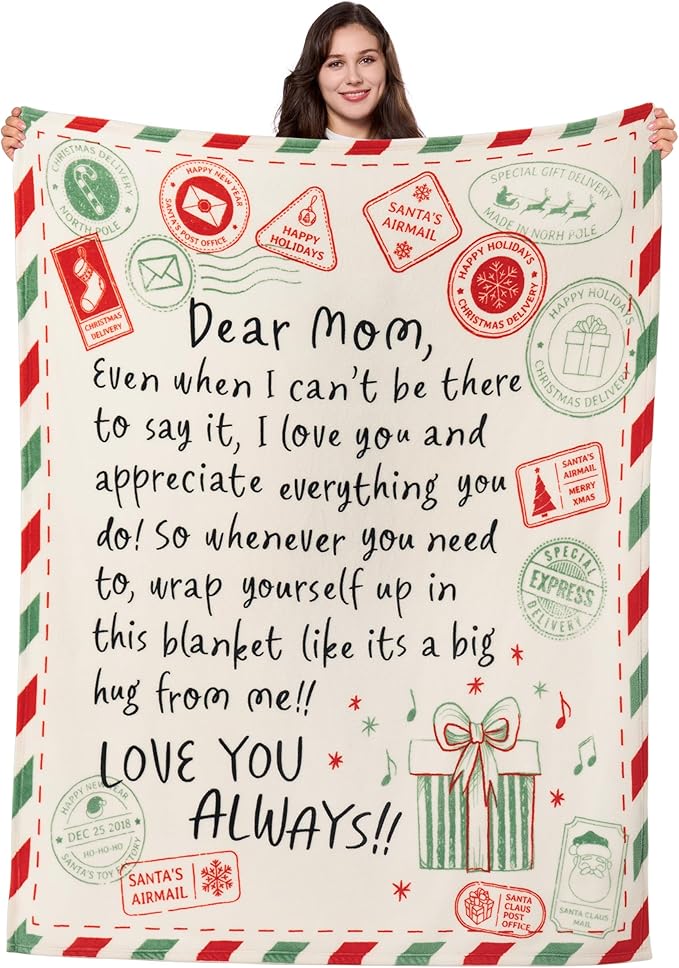 CHRISTMAS DELIVERY
NORTH POLE
HAPPY NEW YEAR
SANTA'S POST OFFICE
HAPPY HOLIDAYS
SANTA'S AIRMAIL
SPECIAL GIFT DELIVERY
MADE IN NORH POLE
CHRISTMAS DELIVERY
HAPPY HOLIDAYS
CHRISTMAS DELIVERY
HAPPY HOLIDAYS
CHRISTMAS DELIVERY
Dear Mom,
Even when I can't be there
to say it, I love you and
appreciate everything you
do! So whenever you need
to, wrap yourself up in
this blanket like its a big
hug from me!!
LOVE YOU
ALWAYS!!
SANTA'S
AIRMAIL
MERRY
XMAS
SPECIAL
EXPRESS
DELIVERY
HAPPY NEW YEAR
DEC 25 2018
HO-HO-HO
SANTA'S TOY FACTORY
SANTA'S
AIRMAIL
SANTA
CLAUS
POST
OFFICE
SANTA CLAUS
MAIL